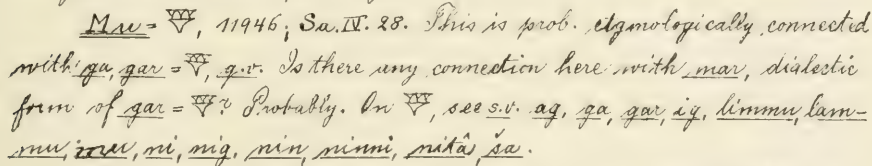 Mu = 𒐼, 11946; Sa. IV. 28. This is prob. etymologically connected
with ga, gar = 𒐼, q.v. Is there any connection here with mar, dialectic
form of gar = 𒐼? Probably. On 𒐼, see s.v. ag, ga, gar, ig, limmu, lam-
mu, mu, ni, nig, nin, ninni, nitâ, ša.